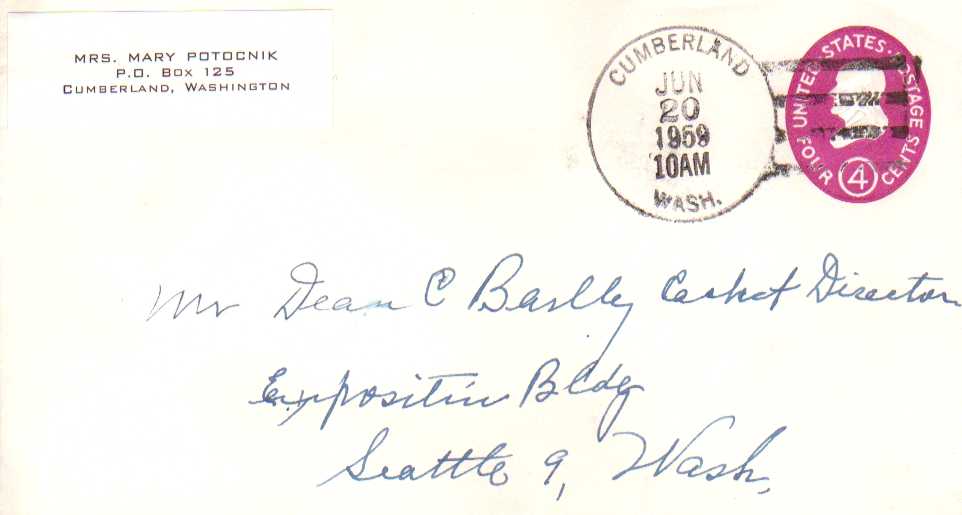 MRS. MARY POTOCNIK
P.O. BOX 125
CUMBERLAND, WASHINGTON
CUMBERLAND
JUN
20
1959
10AM
WASH.
UNITED STATES POSTAGE
FOUR 4 CENTS
Mr Dean C Director
Expositin Bldg
Seattle 9, Wash.